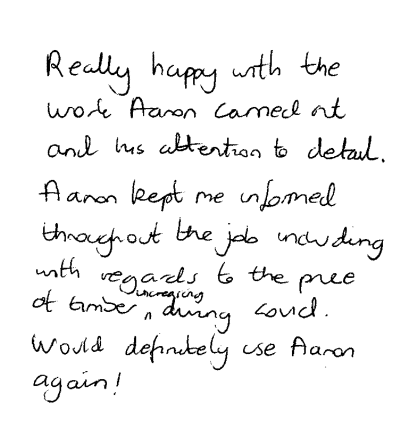 Really happy with the
work Aaron carried out
and his attention to detail.
Aaron kept me informed
throughout the job including
with regards to the price
of timber increasing during covid.
Would definitely use Aaron
again!